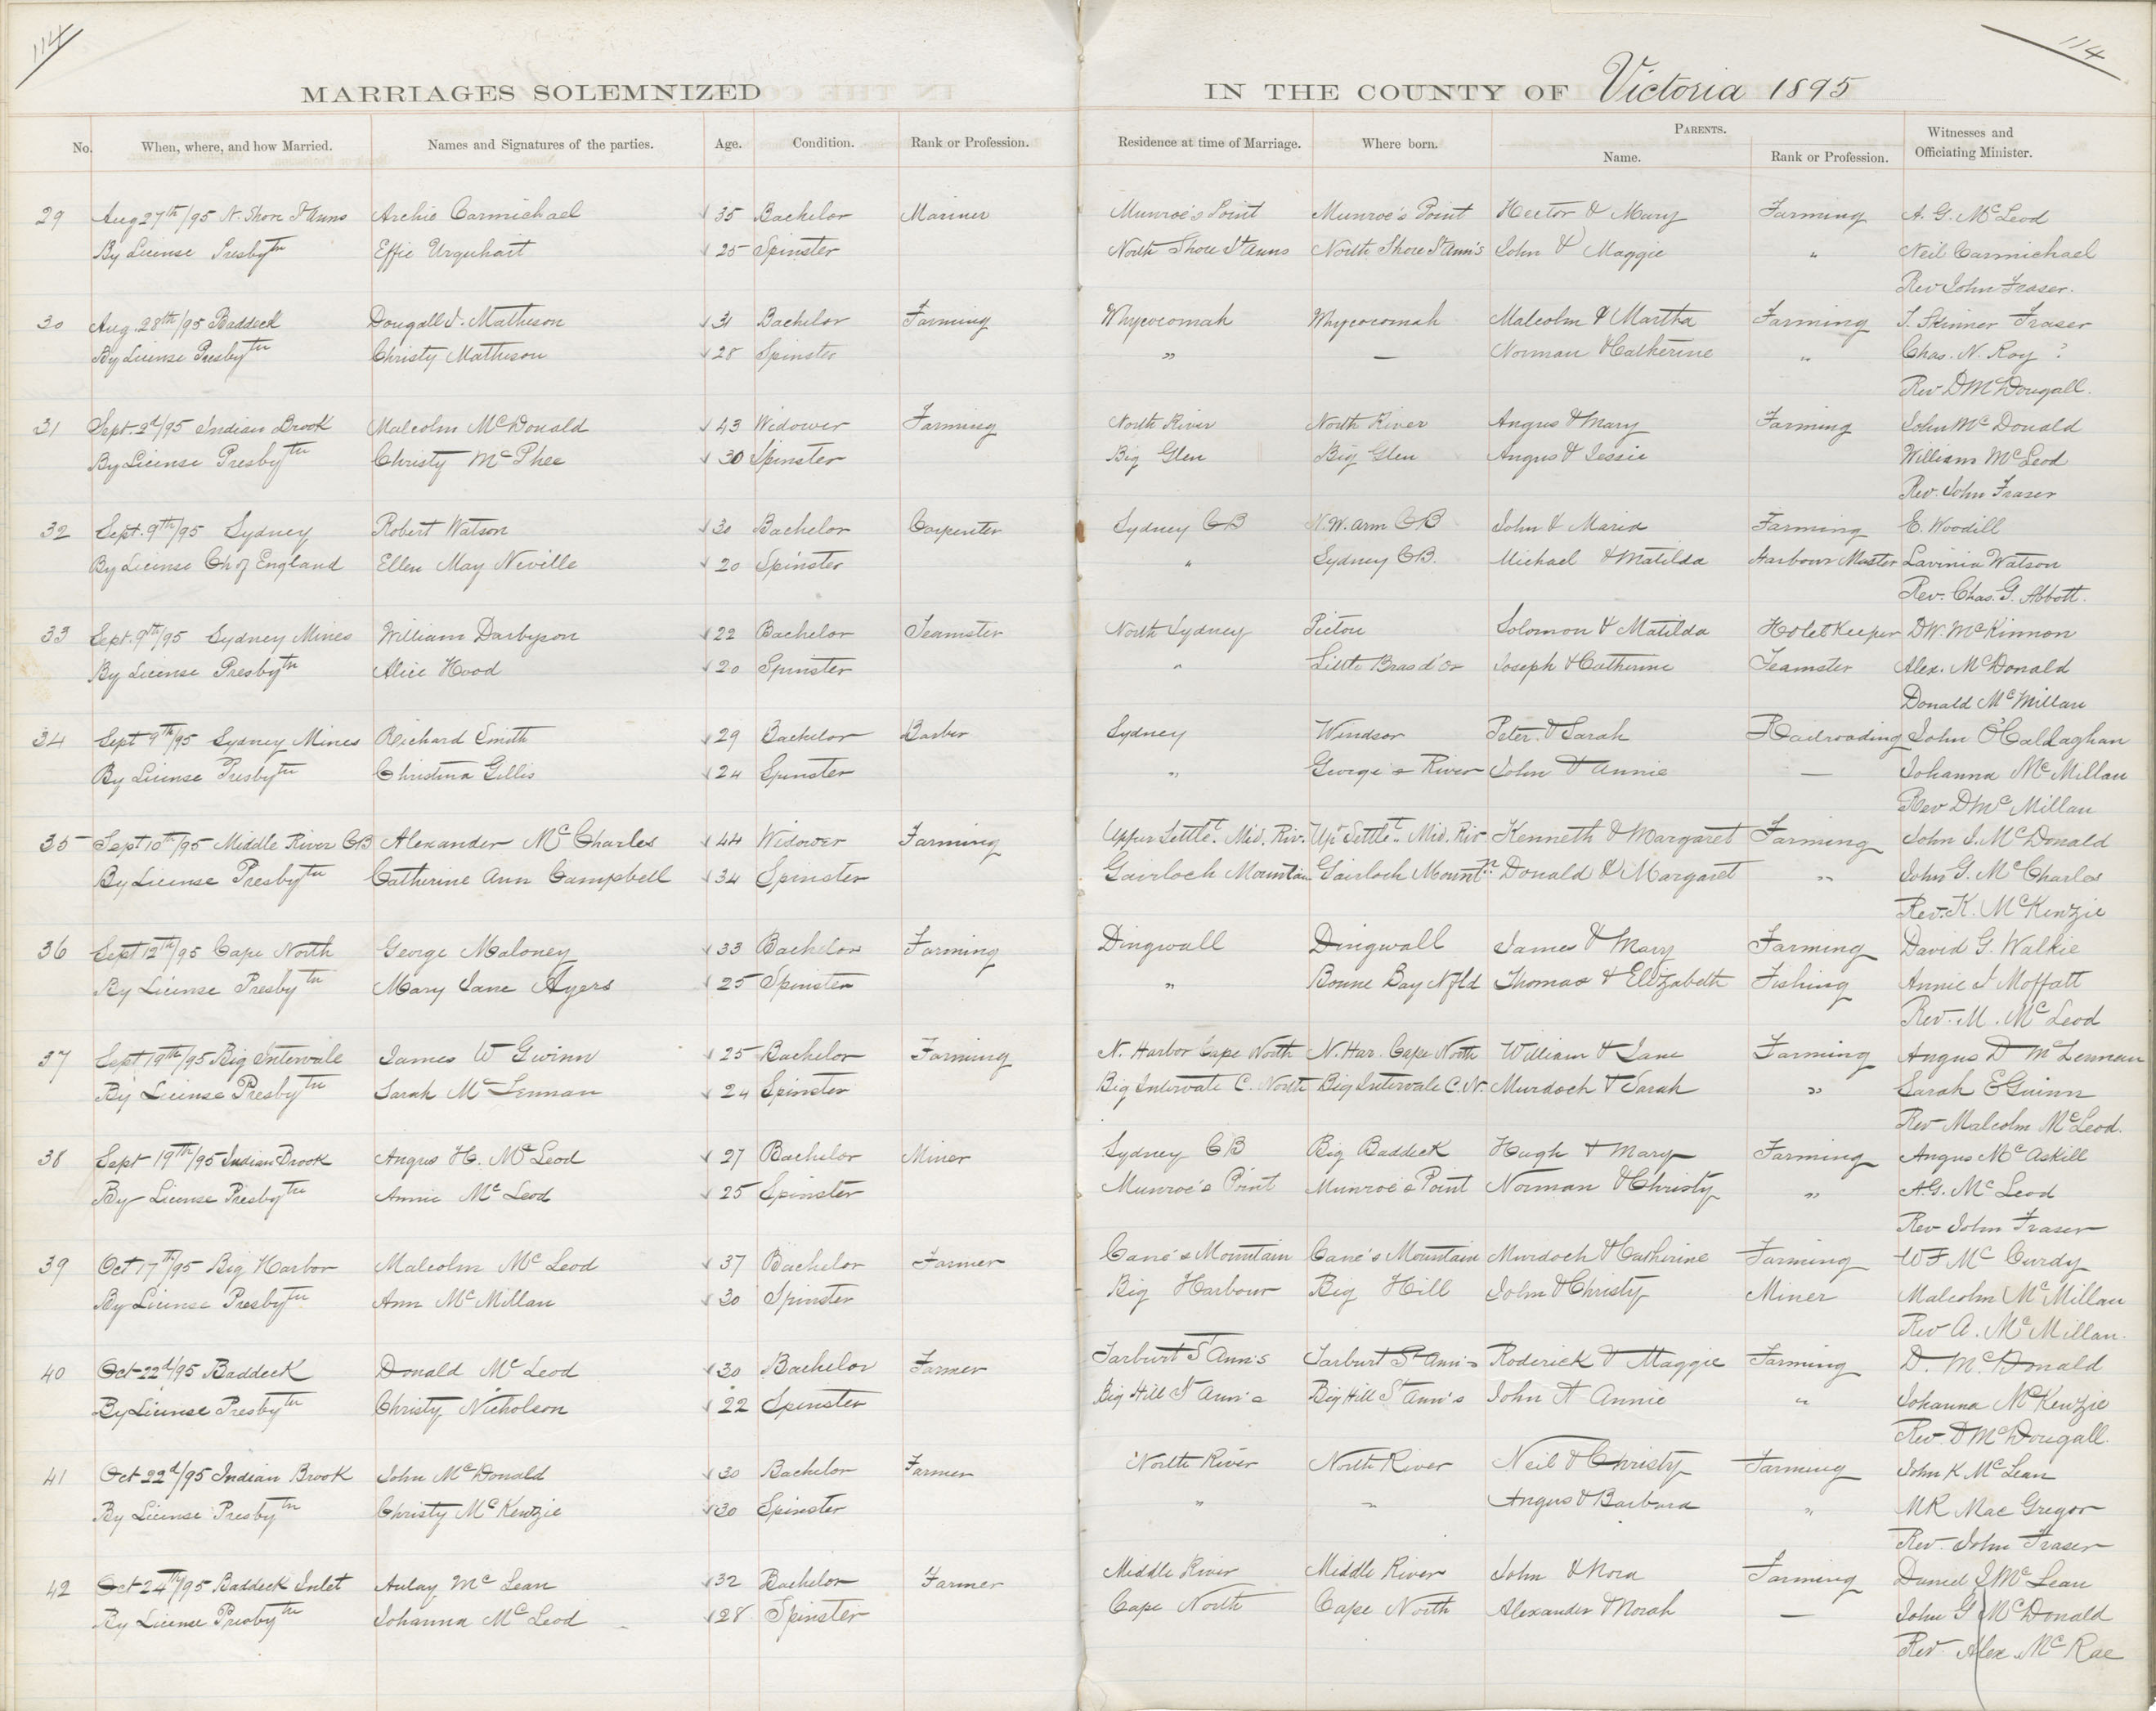 114
114
MARRIAGES SOLEMNIZED IN THE COUNTY OF Victoria 1895
No. When, where, and how Married. Names and Signatures of the parties. Age. Condition. Rank or Profession. Residence at time of Marriage. Where born. PARENTS. Name. Rank or Profession. Witnesses and Officiating Minister.
29 Aug 27th/95 N. Shore St Anns Archie Carmichael 35 Bachelor Mariner Munroe's Point Munroe's Point Hector & Mary Farming A. G. McLeod
By License Presbytn Effie Urquhart 25 Spinster North Shore St Anns North Shore St Ann's John & Maggie " Neil Carmichael
Rev John Fraser.
30 Aug. 28th/95 Baddeck Dougall J. Matheson 31 Bachelor Farming Whycocomah Whycocomah Malcolm & Martha Farming J. Skinner Fraser
By License Presbytn Christy Matheson 28 Spinster " — Norman & Catherine " Chas. N. Roy ?
Rev D McDougall.
31 Sept. 2d/95 Indian Brook Malcolm McDonald 43 Widower Farming North River North River Angus & Mary Farming John McDonald
By License Presbytn Christy McPhee 30 Spinster Big Glen Big Glen Angus & Jessie William McLeod
Rev. John Fraser
32 Sept. 9th/95 Sydney Robert Watson 30 Bachelor Carpenter Sydney CB N.W. Arm CB John & Maria Farming E. Woodill
By License Ch of England Ellen May Neville 20 Spinster " Sydney CB. Michael & Matilda Harbour Master Lavinia Watson
Rev. Chas. G. Abbott.
33 Sept. 9th/95 Sydney Mines William Darbyson 22 Bachelor Teamster North Sydney Pictou Solomon & Matilda Hotel Keeper D.W. McKinnon
By License Presbytn Alice Hood 20 Spinster " Little Bras d'Or Joseph & Catherine Teamster Alex. McDonald
Donald McMillan
34 Sept 9th/95 Sydney Mines Richard Smith 29 Bachelor Barber Sydney Windsor Peter & Sarah Railroading John O'Callaghan
By License Presbytn Christina Gillis 24 Spinster " George's River John & Annie — Johanna McMillan
Rev D McMillan
35 Sept 10th/95 Middle River CB Alexander McCharles 44 Widower Farming Upper Settlet. Mid. Riv. Upr Settlet. Mid. Riv Kenneth & Margaret Farming John J. McDonald
By License Presbytn Catherine Ann Campbell 34 Spinster Gairloch Mountain Gairloch Mountn Donald & Margaret " John G. McCharles
Rev. K. McKenzie
36 Sept 12th/95 Cape North George Maloney 33 Bachelor Farming Dingwall Dingwall James & Mary Farming David G. Walkie
By License Presbytn Mary Jane Ayers 25 Spinster " Bonne Bay Nfld Thomas & Elizabeth Fishing Annie J Moffatt
Rev. M. McLeod
37 Sept 19th/95 Big Intervale James W Gwinn 25 Bachelor Farming N. Harbor Cape North N. Har. Cape North William & Jane Farming Angus D McLennan
By License Presbytn Sarah McLennan 24 Spinster Big Intervale C. North Big Intervale C.N. Murdoch & Sarah " Sarah E Guinn
Rev Malcolm McLeod.
38 Sept 19th/95 Indian Brook Angus H. McLeod 27 Bachelor Miner Sydney CB Big Baddeck Hugh & Mary Farming Angus McAskill
By License Presbytn Annie McLeod 25 Spinster Munroe's Point Munroe's Point Norman & Christy " A.G. McLeod
Rev John Fraser
39 Oct 17th/95 Big Harbor Malcolm McLeod 37 Bachelor Farmer Cane's Mountain Cane's Mountain Murdoch & Catherine Farming W F McCurdy
By License Presbytn Ann McMillan 30 Spinster Big Harbour Big Hill John & Christy Miner Malcolm McMillan
Rev A. McMillan.
40 Oct 22d/95 Baddeck Donald McLeod 30 Bachelor Farmer Tarburt St Ann's Tarburt St Ann's Roderick & Maggie Farming D. McDonald
By License Presbytn Christy Nicholson 22 Spinster Big Hill St Ann's Big Hill St Ann's John & Annie " Johanna McKenzie
Rev. D McDougall.
41 Oct 22d/95 Indian Brook John McDonald 30 Bachelor Farmer North River North River Neil & Christy Farming John K McLean
By License Presbytn Christy McKenzie 30 Spinster " " Angus & Barbara " M R Mac Gregor
Rev. John Fraser
42 Oct 24th/95 Baddeck Inlet Aulay McLean 32 Bachelor Farmer Middle River Middle River John & Nora Farming Daniel J McLean
By License Presbytn Johanna McLeod 28 Spinster Cape North Cape North Alexander & Norah — John G McDonald
Rev. Alex McRae